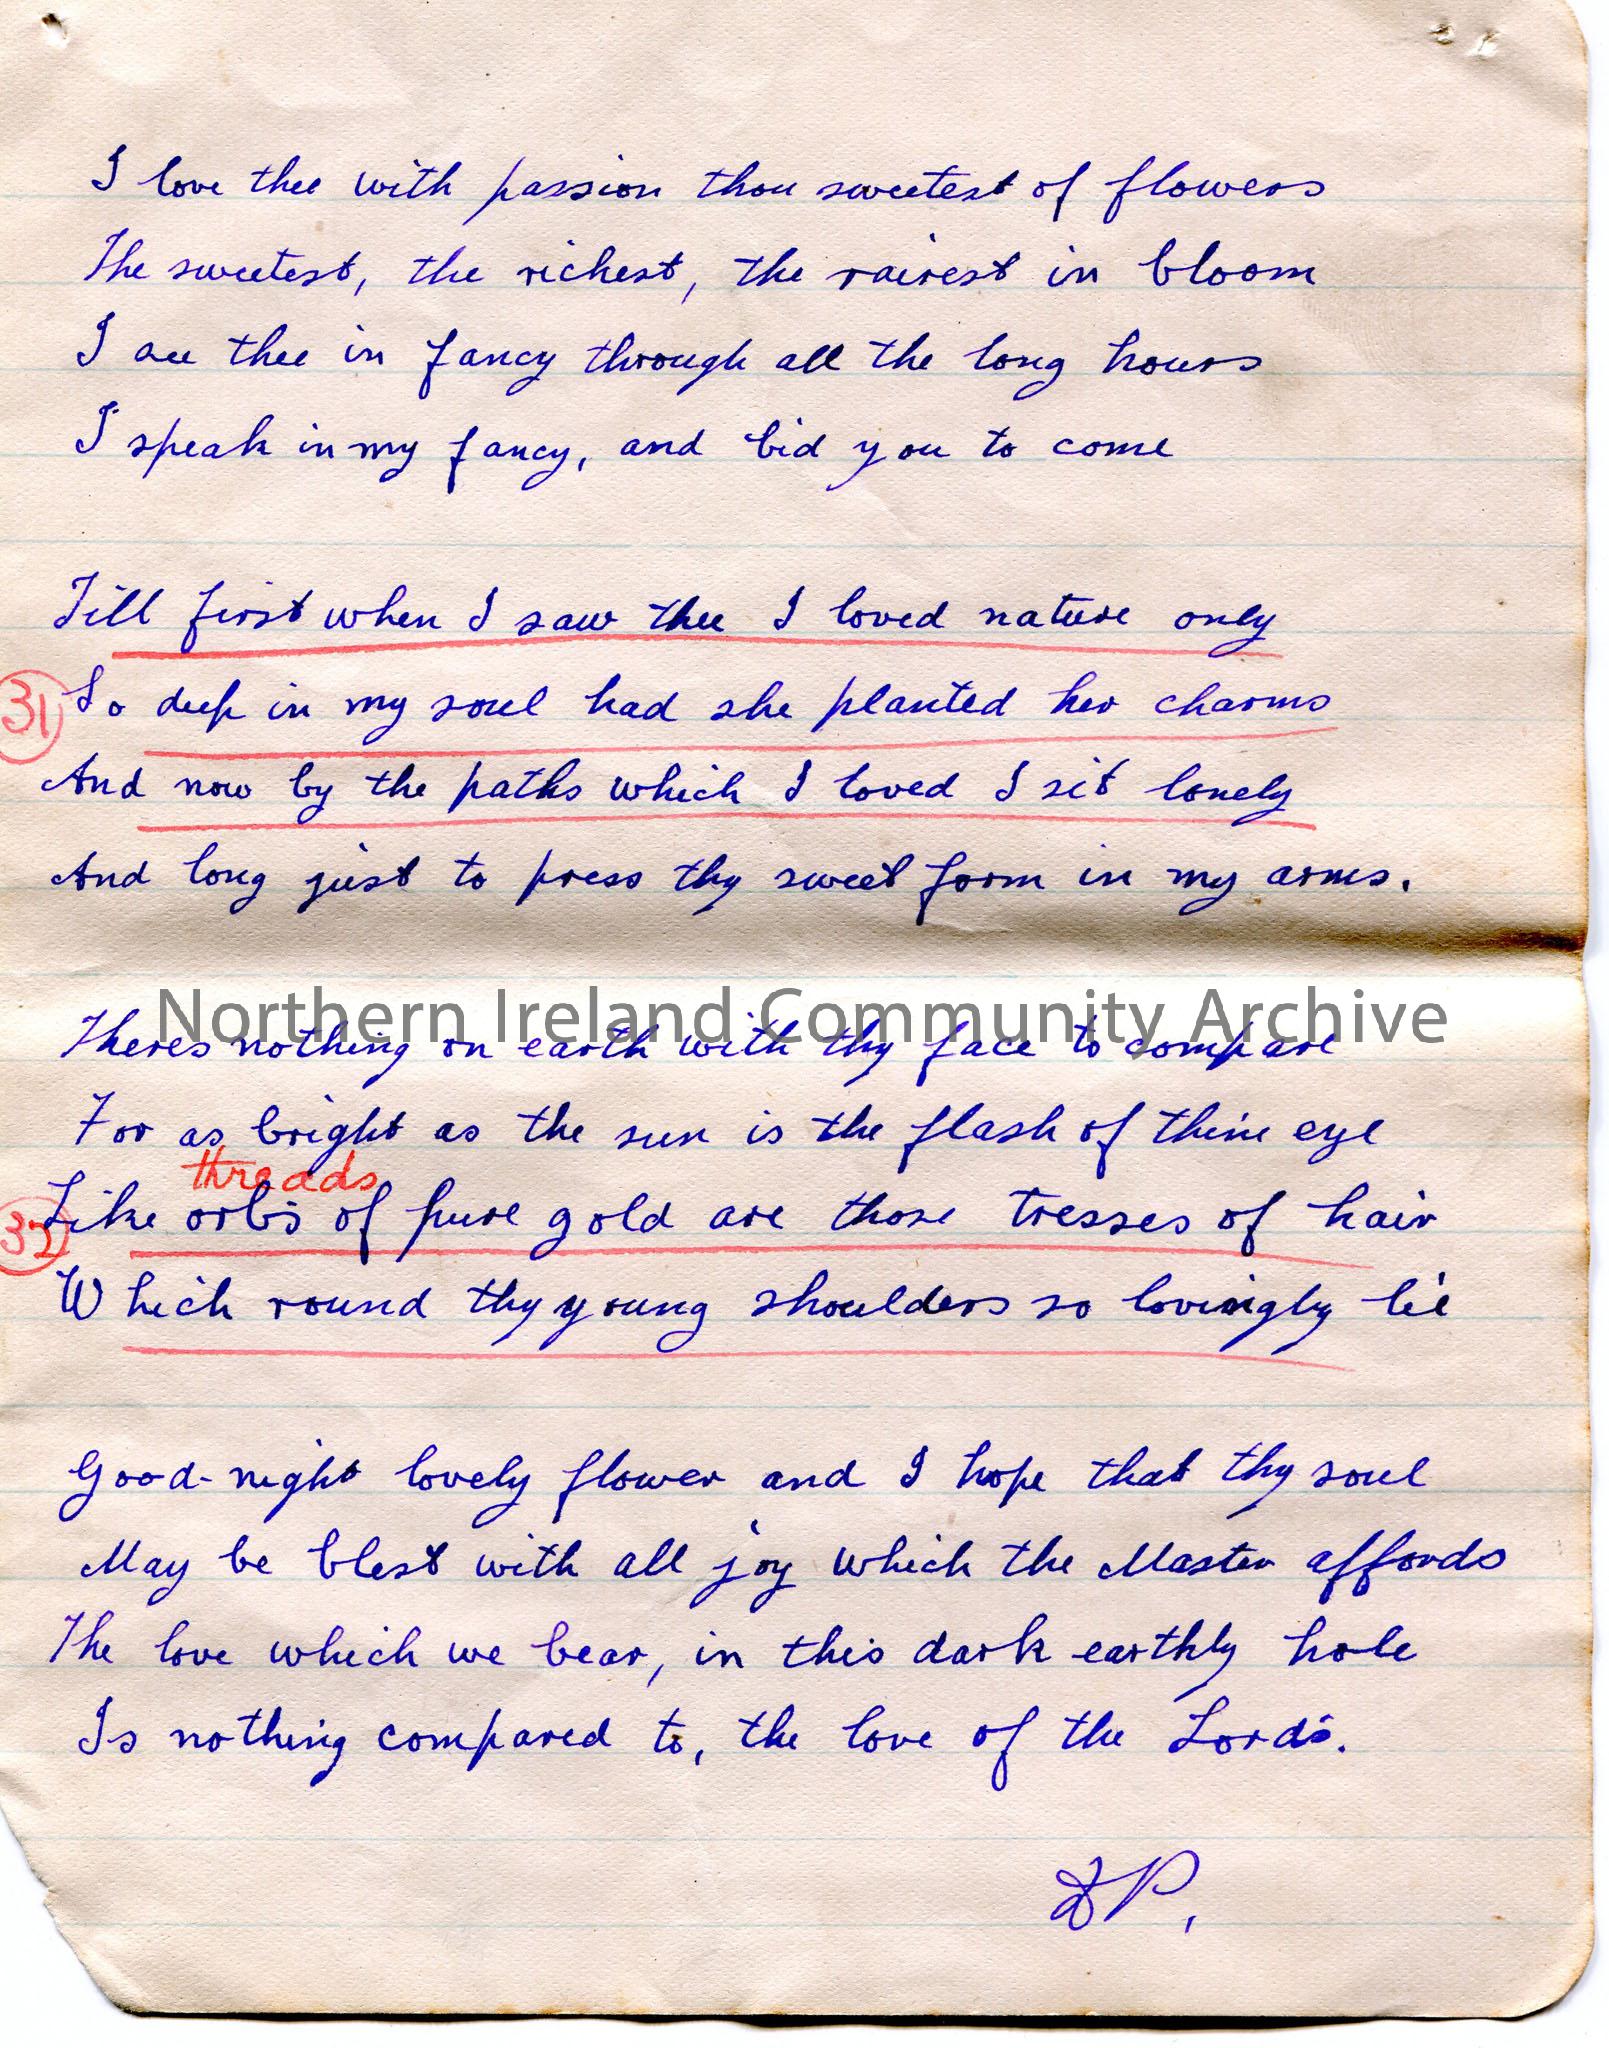 I love thee with passion thou sweetest of flowers
The sweetest, the richest, the rairest in bloom
I see thee in fancy through all the long hours
I speak in my fancy, and bid you to come
Till first when I saw thee I loved nature only
31 So deep in my soul had she planted her charms
And now by the paths which I loved I sit lonely
And long just to press thy sweet form in my arms.
Northern Ireland Community Archive
Theres nothing on earth with thy face to compare
For as bright as the sun is the flash of thine eye
threads
32 Like orbs of pure gold are those tresses of hair
Which round thy young shoulders so lovingly lie
Good-night lovely flower and I hope that thy soul
May be blest with all joy which the Master affords
The love which we bear, in this dark earthly hole
Is nothing compared to, the love of the Lords.